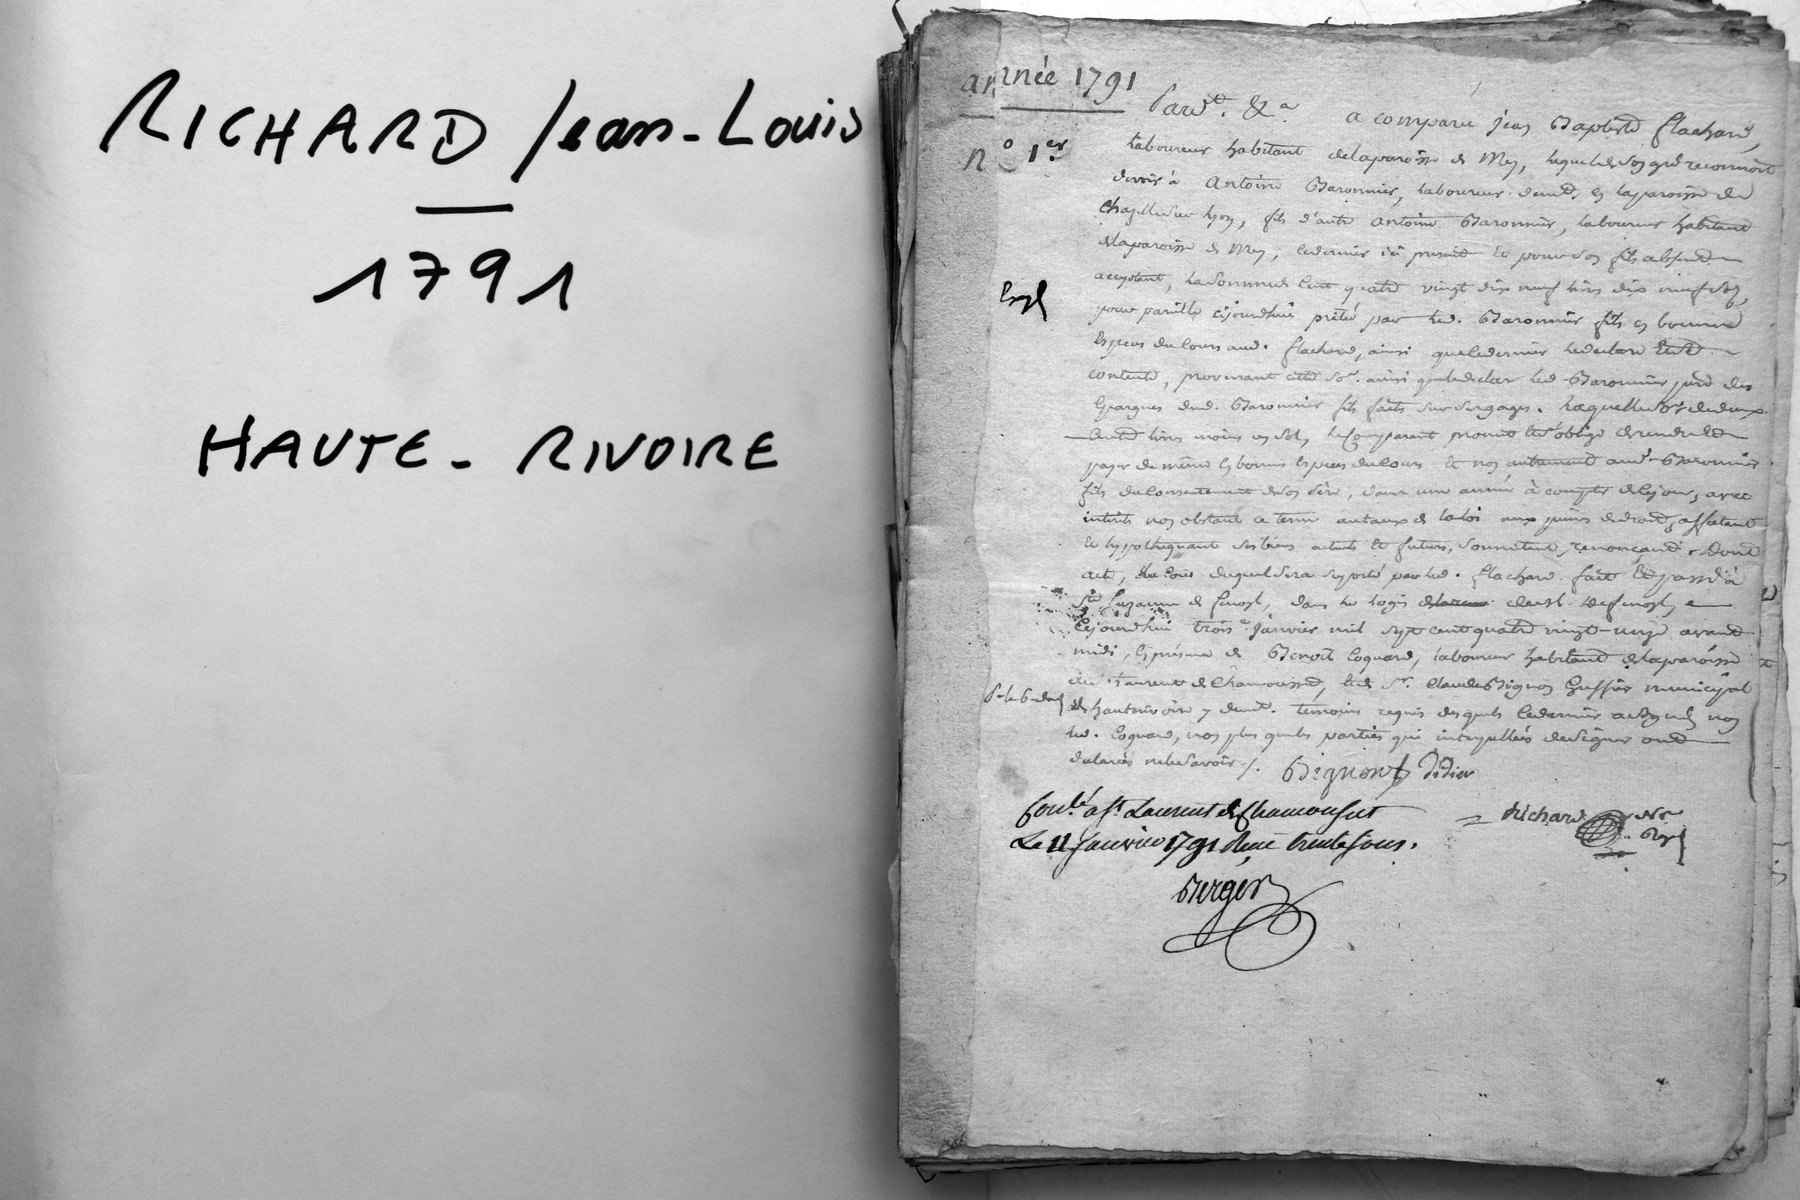 RICHARD Jean-Louis
1791
HAUTE-RIVOIRE
année 1791
n° 1er
Pardt. &a. a comparu jean Baptiste flachard,
laboureur habitant delaparoisse de Mey, lequel de son gré reconnoit
devoir à Antoine Baronnier, laboureur demt. en laparoisse de
Chazelles sur lyon, fils d'autre antoine Baronnier, laboureur habitant
delaparoisse de Mey, cedernier ici present et pour son fils absent
acceptant, la somme de Cent quatre vingt dix neuf livres dix neuf sols,
pour pareille cejourdhui prêtée par led. Baronnier fils en bonnes
Especes de Cours aud. flachard, ainsi que cedernier le declare Et sen
contente, provenant cette So. ainsi que le declare led Baronnier père des
Epargnes dud. Baronnier fils faits sur ses gages. Laquelle So. de deux
Cents livres moins un sol, le Comparant promet et s'oblige de rendre et
payer de même en bonnes Especes de Cours et non autrement aud. Baronnier
fils du Consentement de son Père, dans une année à compter de ce jour, avec
interets non obstant ce terme au taux de la loi aux peines de droit, affectant
et hypothequant ses biens actuels et futurs, soumettant, renonçant. Dont
acte, du Cout duquel sera suporté par led. flachard. fait Et passé à
Ste Suzanne de finost, dans le logis de
Cejourdhui trois janvier mil sept cent quatre vingt-onze avant
midi, en présence de Benoit Coquard, laboureur habitant delaparoisse
de St. Laurent de Chamousset, et de Sr. Claude Bignon Greffier municipal
de hauterivoire y demt. temoins requis desquels ledernier a signé, non
led. Coquard, non plus que les parties qui interpellées de signer ont
declarées ne le savoir ./. Bignon Didier
Richard Nre
Royl
Conlé. a St. Laurent de Chamousset
Le 11 Janvier 1791 Reçu trente sous.
Berger